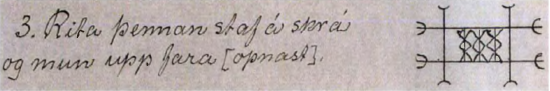 3. Rita þennan staf á skrá
og mun upp fara [opnast].